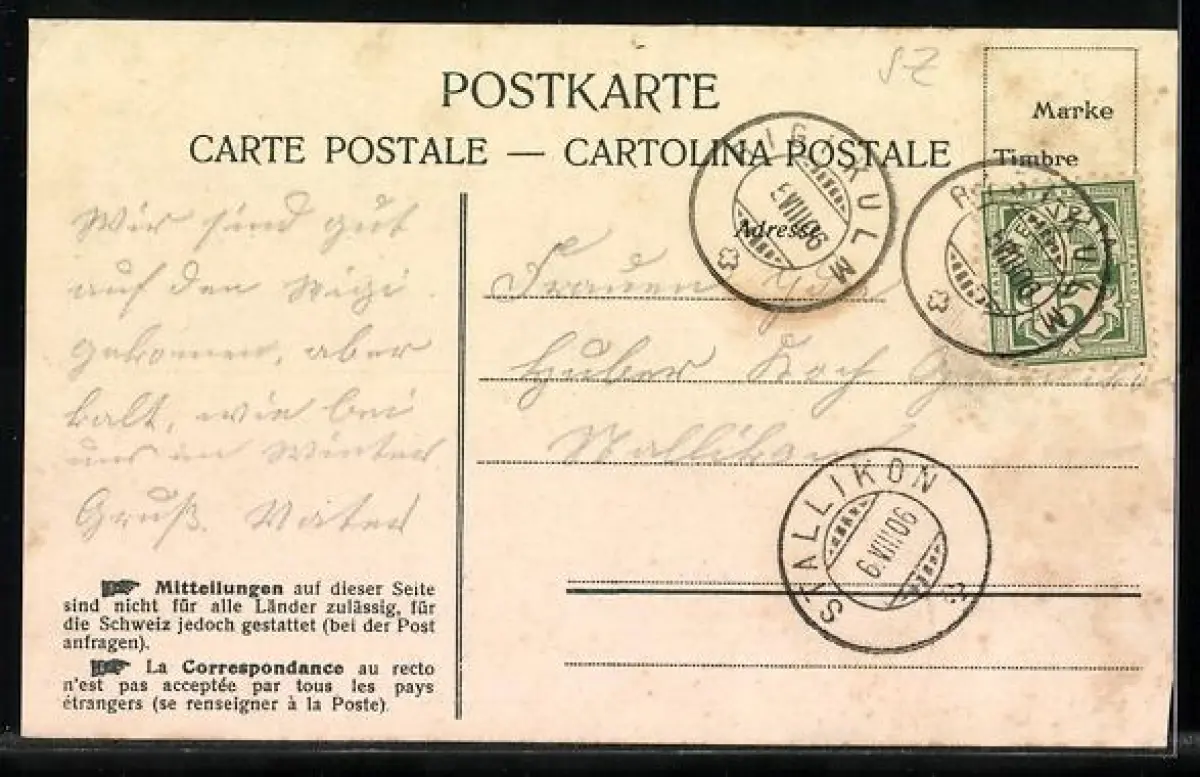 SZ
POSTKARTE
CARTE POSTALE — CARTOLINA POSTALE
Marke
Timbre
RIGI-KULM
5.VIII.06
RIGI-KULM
5
Adresse
Wir sind gut
auf den Rigi
gekommen, aber
kalt, wie bei
uns im Winter
Gruß. Vater
Frauen
Huber Koch
Stallikon
STALLIKON
6.VIII.06
Mitteilungen auf dieser Seite
sind nicht für alle Länder zulässig, für
die Schweiz jedoch gestattet (bei der Post
anfragen).
La Correspondance au recto
n'est pas acceptée par tous les pays
étrangers (se renseigner à la Poste).